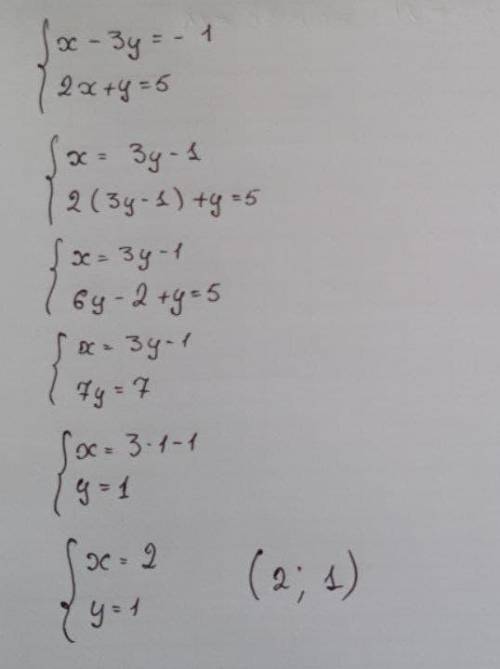 x - 3y = - 1
2x + y = 5
x = 3y - 1
2(3y - 1) + y = 5
x = 3y - 1
6y - 2 + y = 5
x = 3y - 1
7y = 7
x = 3 · 1 - 1
y = 1
x = 2
y = 1
(2; 1)